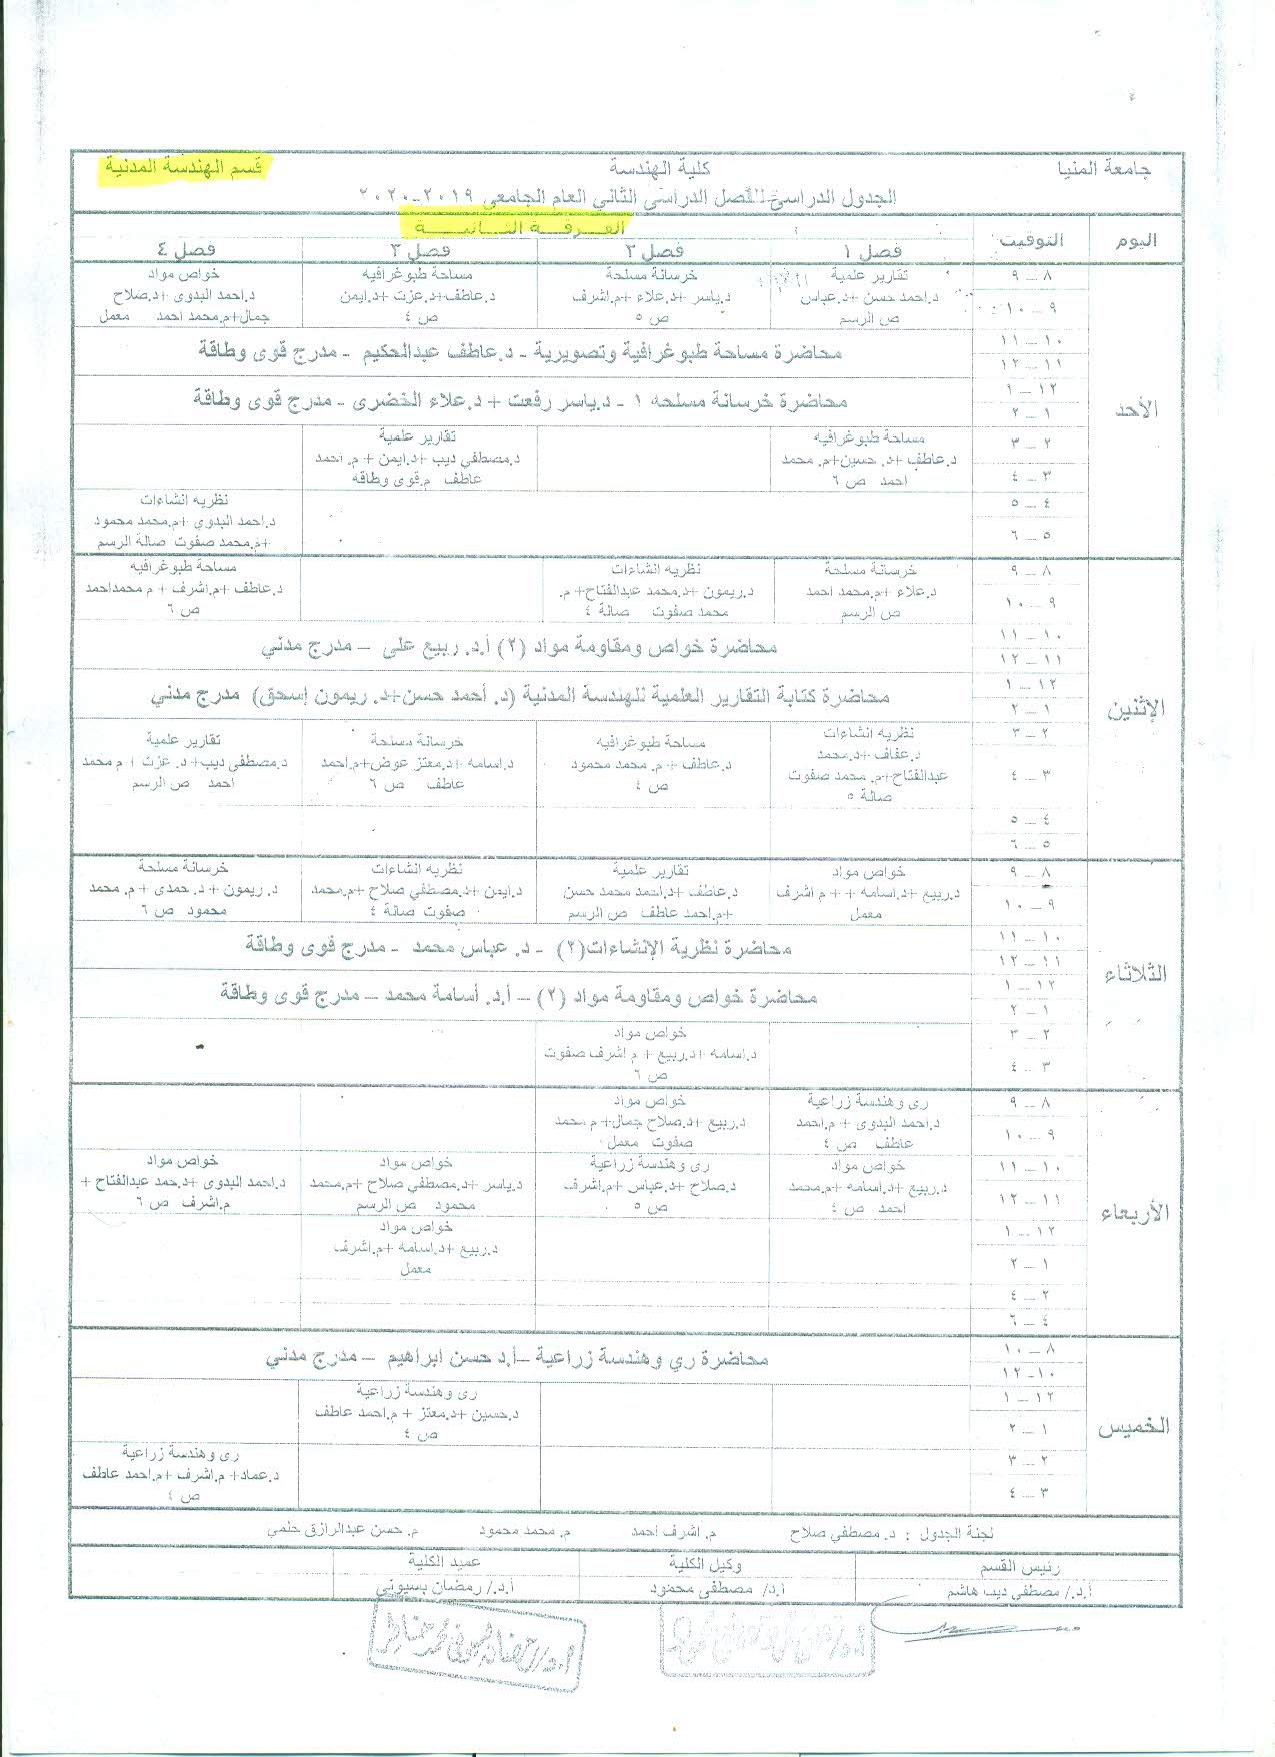 جامعة المنيا كلية الهندسة قسم الهندسة المدنية
الجدول الدراسى للفصل الدراسى الثانى العام الجامعى ٢٠١٩-٢٠٢٠
اليوم التوقيت الفرقة الثانية
فصل ١ فصل ٢ فصل ٣ فصل ٤
الأحد
٨ – ٩ تقارير علمية خرسانة مسلحة مساحة طبوغرافيه خواص مواد
٩ – ١٠ د.احمد حسن +د.عباس د.ياسر +د.علاء +م.اشرف د.عاطف+د.عزت +د.ايمن د.احمد البدوى +د.صلاح
ص الرسم ص ٥ ص ٤ جمال+م.محمد احمد معمل
١٠ – ١١
محاضرة مساحة طبوغرافية وتصويرية - د.عاطف عبدالحكيم - مدرج قوى وطاقة
١١ – ١٢
١٢ – ١
محاضرة خرسانة مسلحه ١ - د.ياسر رفعت + د.علاء الخضرى - مدرج قوى وطاقة
١ – ٢
٢ – ٣ مساحة طبوغرافيه تقارير علمية
د.عاطف +د. حسين+م. محمد د.مصطفي ديب +د.ايمن + م. احمد
٣ – ٤ احمد ص ٦ عاطف م.قوى وطاقة
٤ – ٥ نظريه انشاءات
د.احمد البدوي +م.محمد محمود
٥ – ٦ +م.محمد صفوت صالة الرسم
الإثنين
٨ – ٩ خرسانة مسلحة نظريه انشاءات مساحة طبوغرافيه
٩ – ١٠ د.علاء +م.محمد احمد د.ريمون +د.محمد عبدالفتاح+ م. د.عاطف +م.اشرف + م محمداحمد
ص الرسم محمد صفوت صالة ٤ ص ٦
١٠ – ١١
محاضرة خواص ومقاومة مواد (٢) أ.د. ربيع على – مدرج مدني
١١ – ١٢
١٢ – ١
محاضرة كتابة التقارير العلمية للهندسة المدنية (د. أحمد حسن+د. ريمون إسحق) مدرج مدني
١ – ٢
٢ – ٣ نظريه انشاءات مساحة طبوغرافيه خرسانة مسلحة تقارير علمية
د.عفاف +د.محمد د.عاطف + م. محمد محمود د.اسامه +د.معتز عوض+م.احمد د.مصطفى ديب+د. عزت + م محمد
٣ – ٤ عبدالفتاح+م. محمد صفوت ص ٤ عاطف ص ٦ احمد ص الرسم
صالة ٥
٤ – ٥
٥ – ٦
الثلاثاء
٨ – ٩ خواص مواد تقارير علمية نظريه انشاءات خرسانة مسلحة
٩ – ١٠ د.ربيع +د.اسامه + + م اشرف د.عاطف +د.احمد محمد حسن د.ايمن +د.مصطفي صلاح +م.محمد د. ريمون +د. حمدى + م. محمد
معمل +م.احمد عاطف ص الرسم صفوت صالة ٤ محمود ص ٦
١٠ – ١١
محاضرة نظرية الإنشاءات(٢) - د. عباس محمد - مدرج قوى وطاقة
١١ – ١٢
١٢ – ١
محاضرة خواص ومقاومة مواد (٢) – أ.د. أسامة محمد – مدرج قوى وطاقة
١ – ٢
٢ – ٣ خواص مواد
د.اسامه +د.ربيع + م اشرف صفوت
٣ – ٤ ص ٦
الأربعاء
٨ – ٩ رى وهندسة زراعية خواص مواد
٩ – ١٠ د.احمد البدوى + م.احمد د.ربيع +د.صلاح جمال+ م.محمد
عاطف ص ٤ صفوت معمل
١٠ – ١١ خواص مواد رى وهندسة زراعية خواص مواد خواص مواد
١١ – ١٢ د.ربيع +د.اسامه +م.محمد د.صلاح +د.عباس +م.اشرف د.ياسر +د.مصطفي صلاح +م.محمد د.احمد البدوى +د.حمد عبدالفتاح +
احمد ص ٤ ص ٥ محمود ص الرسم م.اشرف ص ٦
١٢ – ١ خواص مواد
١ – ٢ د.ربيع +د.اسامه +م.اشرف
معمل
٢ – ٤
٤ – ٦
الخميس
٨ – ١٠
محاضرة ري وهندسة زراعية –أ.د حسن ابراهيم – مدرج مدني
١٠ – ١٢
١٢ – ١ رى وهندسة زراعية
١ – ٢ د.حسين +د.معتز + م.احمد عاطف
ص ٤
٢ – ٣ رى وهندسة زراعية
د.عماد+ م.اشرف +م.احمد عاطف
٣ – ٤ ص ٤
لجنة الجدول : د. مصطفي صلاح م. اشرف احمد م. محمد محمود م. حسن عبدالرازق حلمي
رئيس القسم وكيل الكلية عميد الكلية
أ.د./ مصطفى ديب هاشم أ.د/ مصطفى محمود أ.د./ رمضان بسيونى